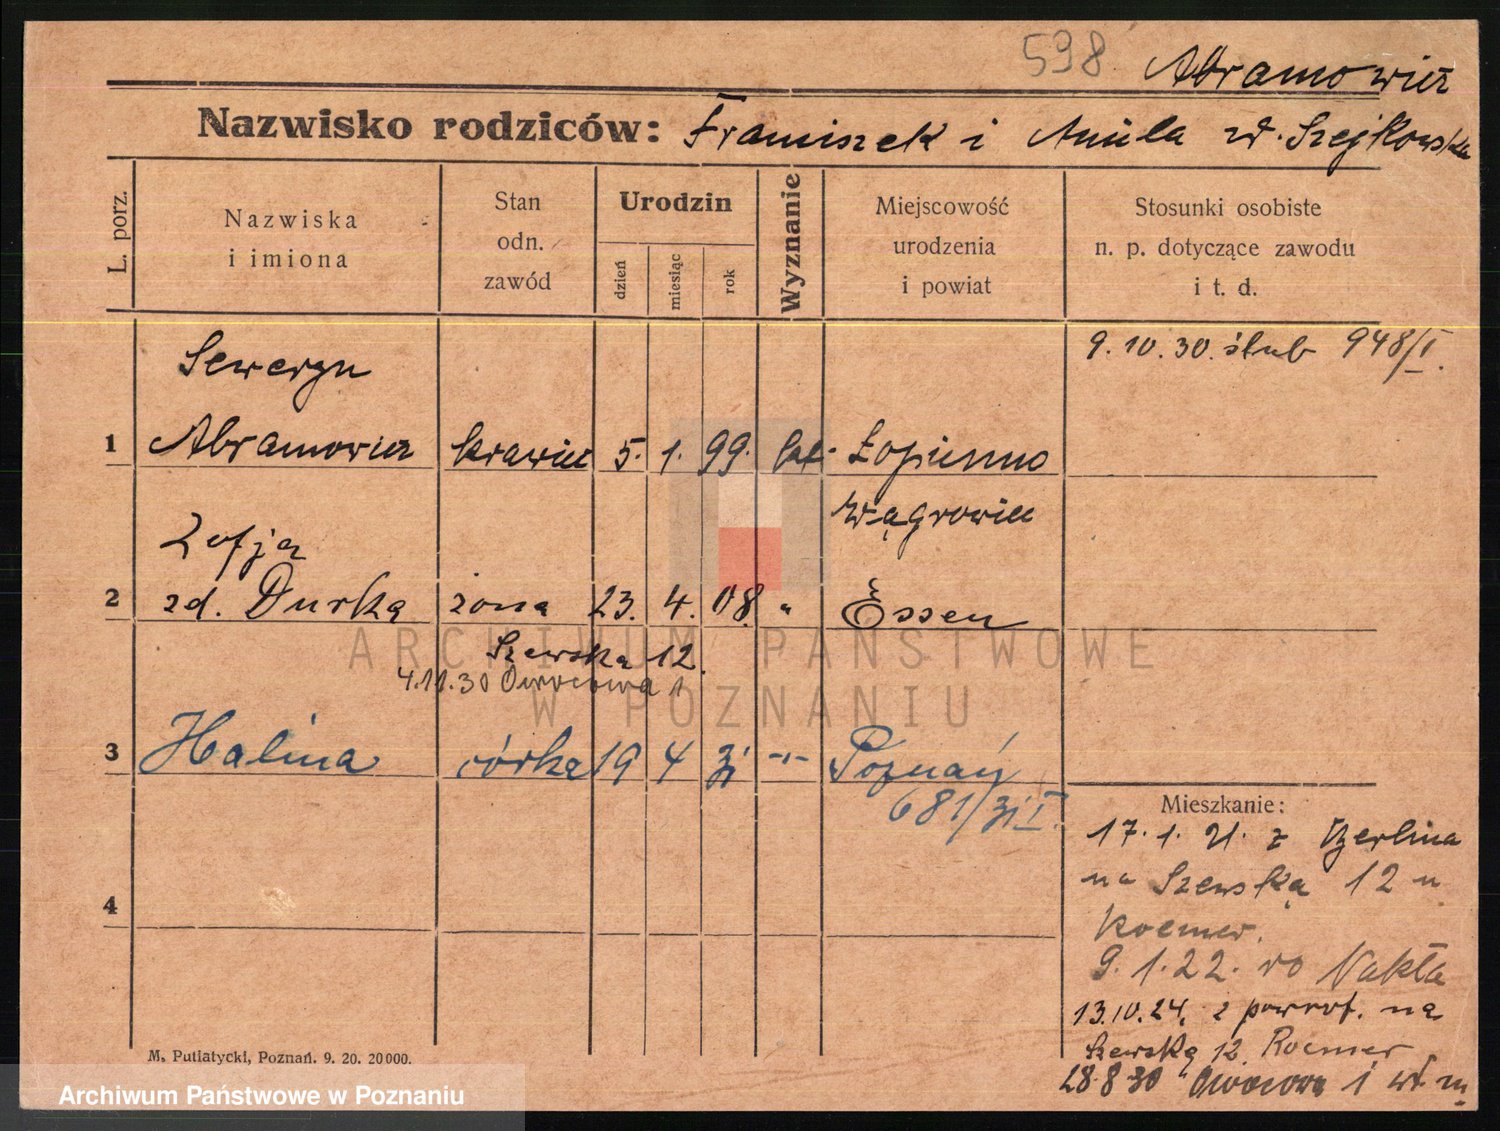 598
Abramowicz
Nazwisko rodziców: Franciszek i Aniela zd. Szejkowska
L. porz.
Nazwiska i imiona
Stan odn. zawód
Urodzin
dzień
miesiąc
rok
Wyznanie
Miejscowość urodzenia i powiat
Stosunki osobiste n. p. dotyczące zawodu i t. d.
9.10.30. ślub 948/I.
Seweryn
1 Abramowicz krawiec 5. 1. 99. kat. Łopienno
Wągrowiec
Zofja
2 zd. Durka żona 23. 4. 08. " Essen
Szewska 12.
4.11.30 Owocowa 1
3 Halina córka 19 4 31 -"- Poznań
681/31 I.
4
Mieszkanie:
17.1.21. z Berlina
na Szewską 12 u
Roemer.
9.1.22. do Nakła
13.10.24. z powrot. na
Szewską 12 Roemer
28.8.30 Owocowa 1
M. Putiatycki, Poznań. 9. 20. 20000.
ARCHIWUM PAŃSTWOWE
W POZNANIU
Archiwum Państwowe w Poznaniu